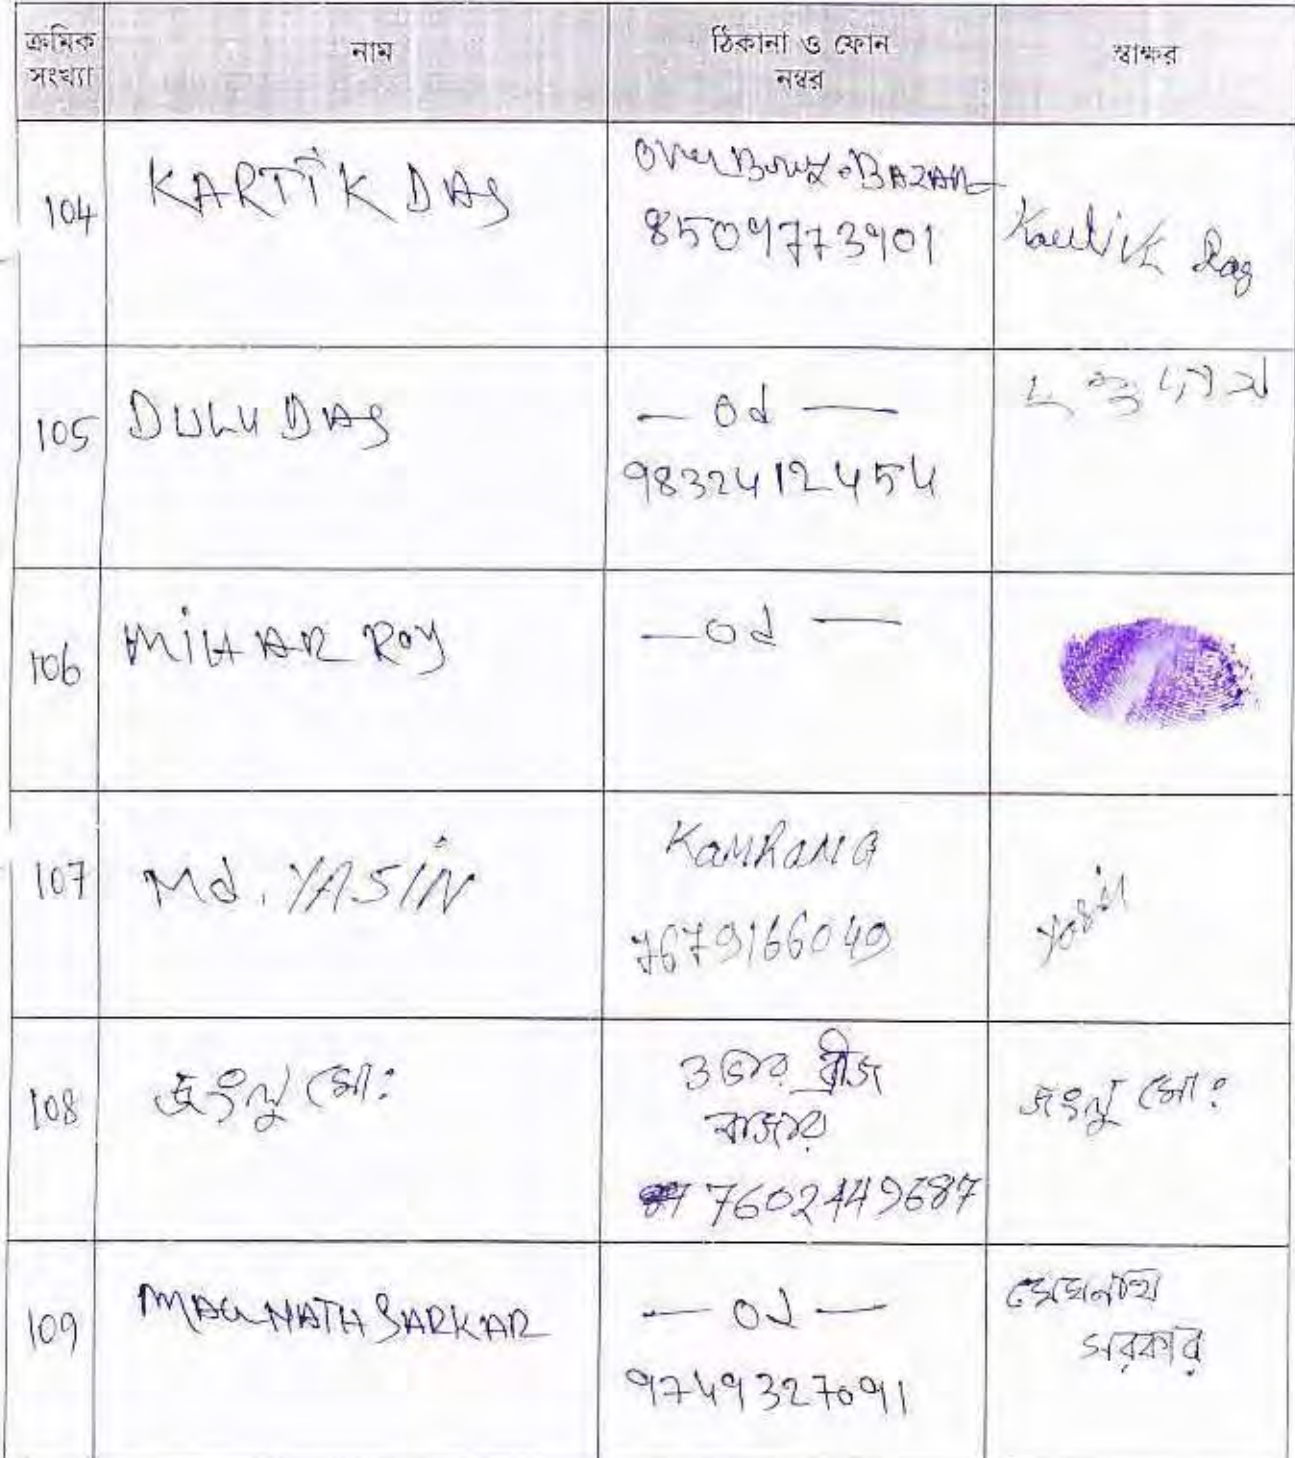 ক্রমিক সংখ্যা নাম ঠিকানা ও ফোন নম্বর স্বাক্ষর
104 KARTIK DAS Over Bridge BAZAR
8509773901 Kartik Das
105 DULU DAS — od — দুলু দাস
9832412454
106 MIHAR ROY — od —
107 Md. YASIN KAMRANG
7679166049 Yasin
108 জংলু মো: ওভার ব্রীজ জংলু মো:
বাজার
7602449687
109 NATH SARKAR — od — মেঘনাথ
9749327091 সরকার